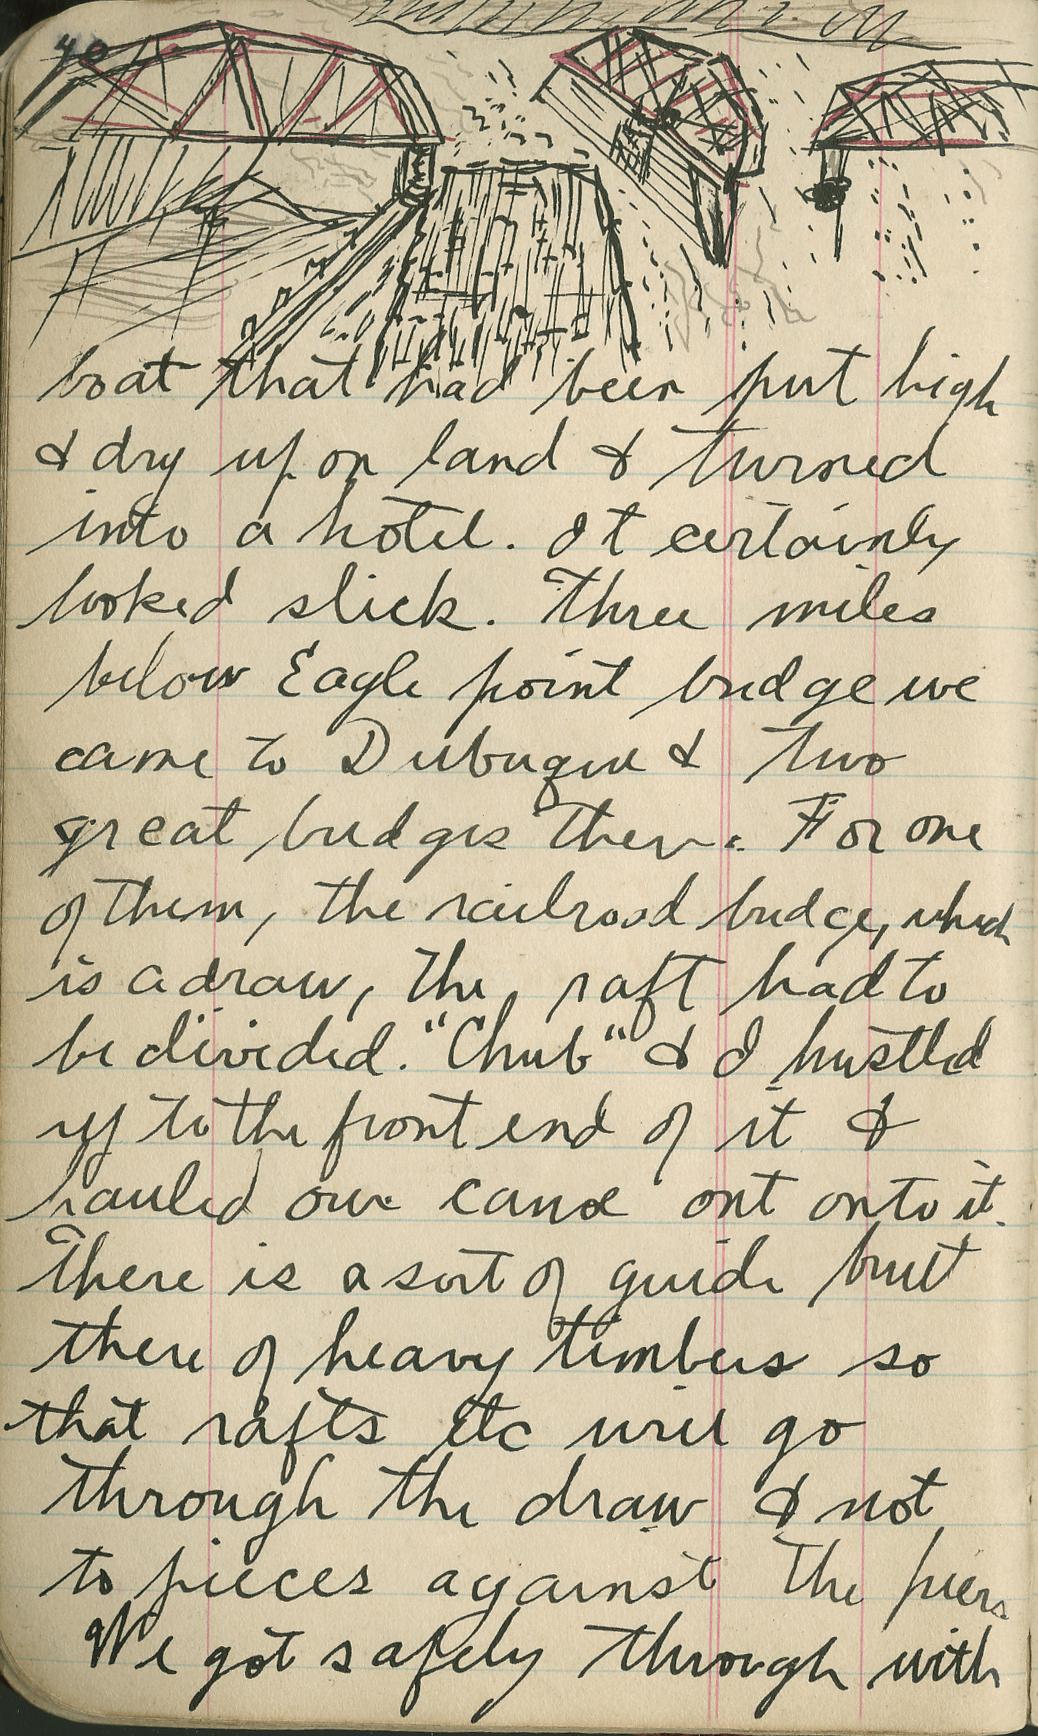 40
boat that had been put high
& dry up on land & turned
into a hotel. It certainly
looked slick. Three miles
below Eagle point bridge we
came to Dubuque & two
great bridges there. For one
of them, the railroad bridge, which
is a draw, the raft had to
be divided. "Chub" & I hustled
up to the front end of it &
hauled our canoe out onto it.
There is a sort of guide built
there of heavy timbers so
that rafts etc will go
through the draw & not
to pieces against the piers
We got safely through with